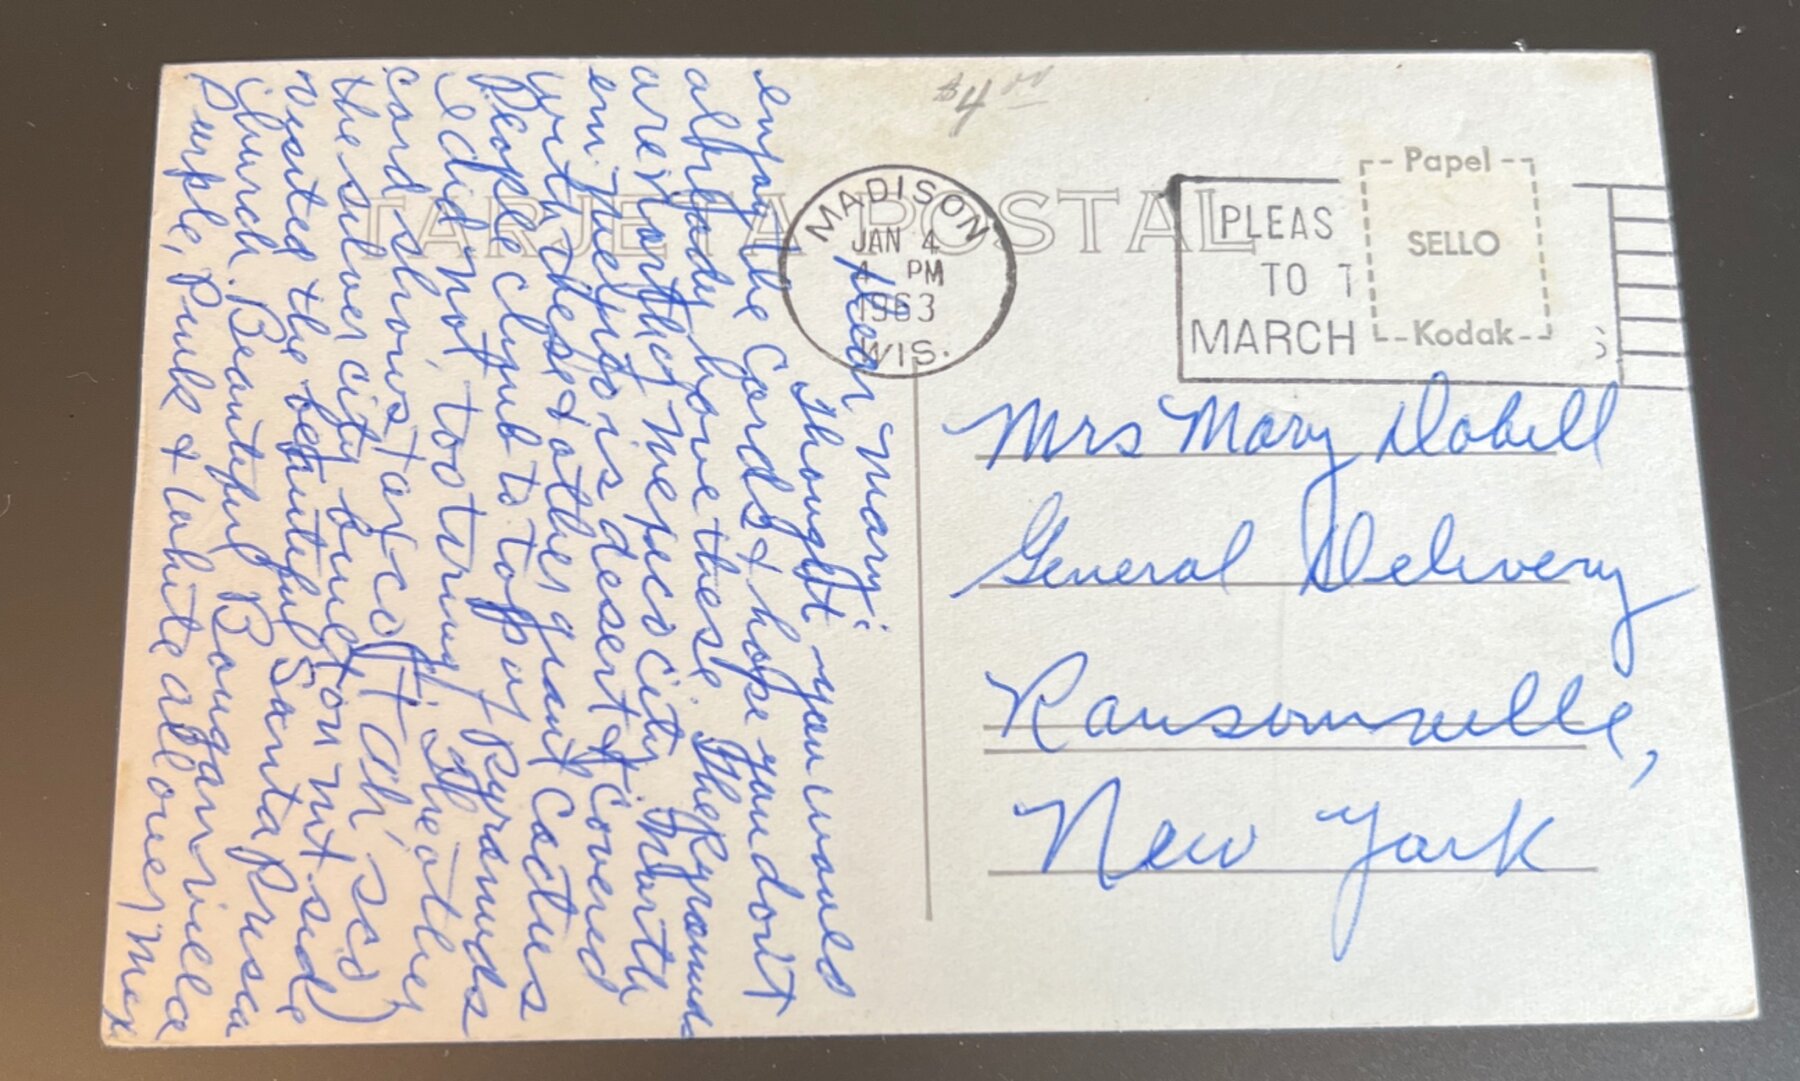 $4.00
TARJETA POSTAL
MADISON
JAN 4
PM
1963
WIS.
PLEAS
TO T
MARCH
Papel
SELLO
Kodak
Dear Mary:
Thought you would
enjoy the Cards & hope you don't
already have these. The Pyramids
are north of Mexico City. North
ern Mexico is desert & covered
with these & other giant Cactus
People climb to top of Pyramids
I did not, too tiring. The other
card shows Taxco (T Ah' sco)
the silver city built on mt side
visited the beautiful Santa Prisca
church. Beautiful Bouganviella
Purple, Pink & White all over Mex
Mrs Mary Dobell
General Delivery
Ransomville,
New York